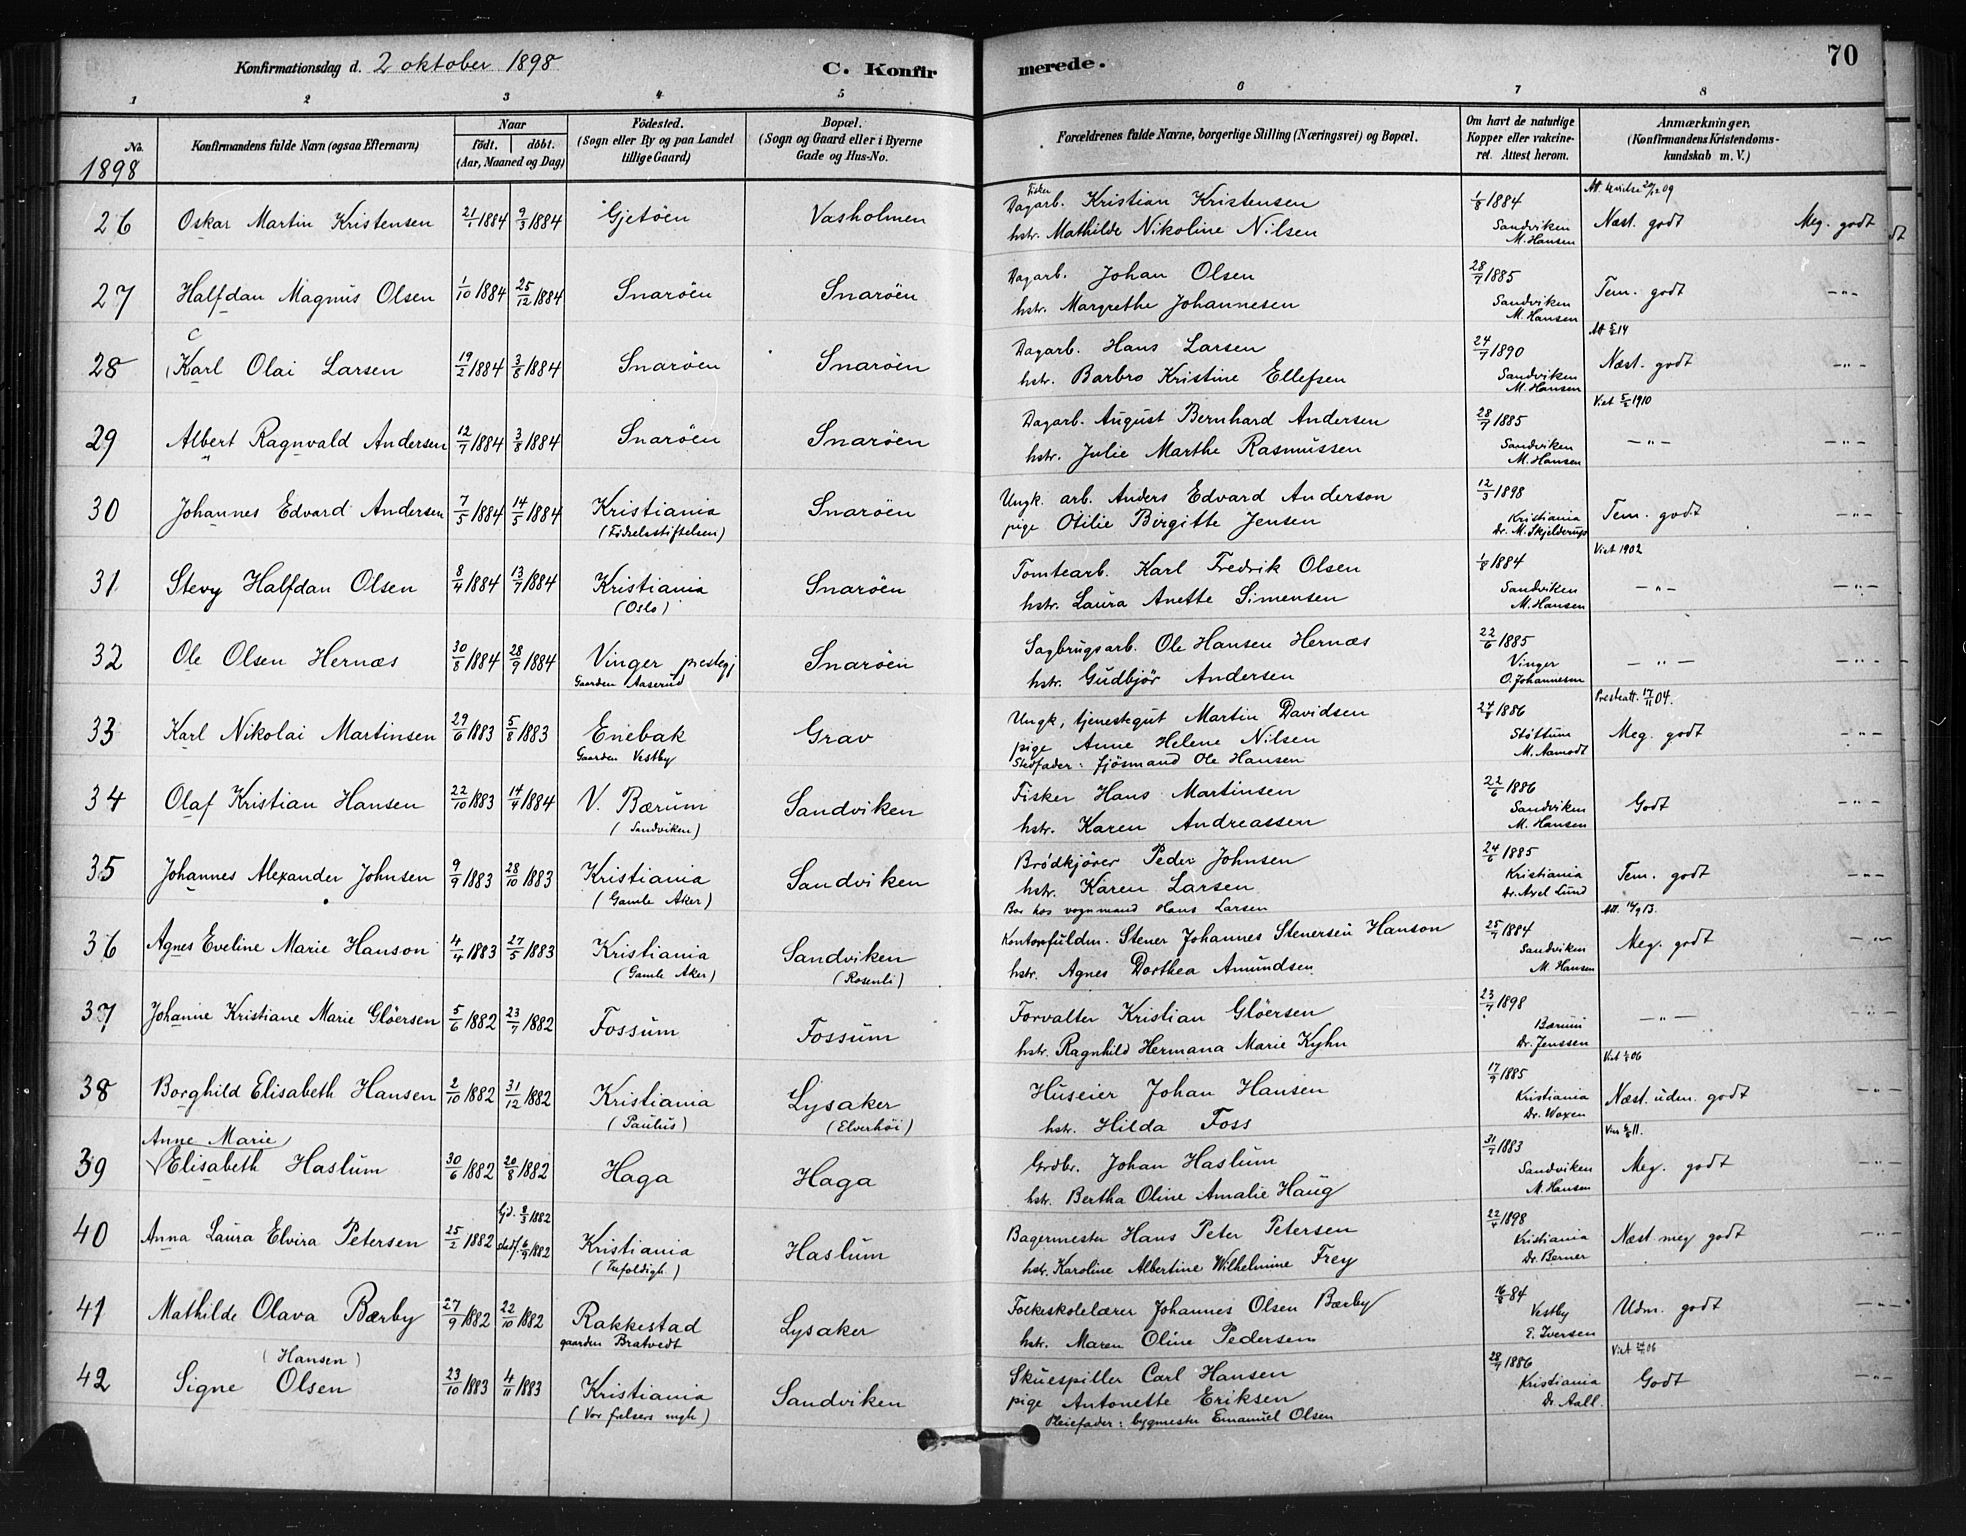 Konfirmationsdag d. 2 oktober 1898
C. Konfirmerede.
70
1 2 3 4 5 6 7 8
No. Konfirmandens fulde Navn (ogsaa Efternavn) Naar født. døbt. (Aar, Maaned og Dag) Fødested. (Sogn eller By og paa Landet tillige Gaard) Bopæl. (Sogn og Gaard eller i Byerne Gade og Hus-No.) Forældrenes fulde Navne, borgerlige Stilling (Næringsvei) og Bopæl. Om havt de naturlige Kopper eller vakcineret. Attest herom. Anmærkninger. (Konfirmandens Kristendomskundskab m. V.)
1898
26 Oskar Martin Kristensen 21/1 1884 9/3 1884 Gjetöen Vasholmen
Fisker
Dagarb. Kristian Kristensen
hstr. Mathilde Nikoline Nilsen
1/8 1884 Sandviken M. Hansen
Næst. godt Meg. godt
27 Halfdan Magnus Olsen 1/10 1884 25/12 1884 Snaröen Snaröen
Dagarb. Johan Olsen
hstr. Margrethe Johannesen
28/7 1885 Sandviken M. Hansen
Tem. godt —"—
28 Karl Olai Larsen 19/2 1884 3/8 1884 Snaröen Snaröen
C
Dagarb. Hans Larsen
hstr. Barbro Kristine Ellefsen
24/7 1890 Sandviken M. Hansen
Næst. godt —"—
29 Albert Ragnvald Andersen 12/7 1884 3/8 1884 Snaröen Snaröen
Dagarb. August Bernhard Andersen
hstr. Julie Marthe Rasmussen
28/7 1885 Sandviken M. Hansen
Viet 5/2 1910
—"— —"—
30 Johannes Edvard Andersen 7/5 1884 14/5 1884 Kristiania (Födselsstiftelsen) Snaröen
Ungk. arb. Anders Edvard Anderson
pige Otilie Birgitte Jensen
12/3 1898 Kristiania Dr. M. Skjelderup
Tem. godt —"—
31 Stevy Halfdan Olsen 8/4 1884 13/7 1884 Kristiania (Oslo) Snaröen
Tomtearb. Karl Fredrik Olsen
hstr. Laura Anette Simensen
1/8 1884 Sandviken M. Hansen
Viet 1902
—"— —"—
32 Ole Olsen Hernæs 30/8 1884 28/9 1884 Vinger prestegj Gaarden Aaserud Snaröen
Sagbrugsarb. Ole Hansen Hernæs
hstr. Gudbjör Andersen
22/6 1885 Vinger O. Johannesen
—"— —"—
33 Karl Nikolai Martinsen 29/6 1883 5/8 1883 Enebak Gaarden Vestby Grav
Ungk, tjenestegut Martin Davidsen
pige Anne Helene Nilsen
Stedfader: fjösmand Ole Hansen
24/8 1886 Støttum M. Aamodt
Prestatt. 17/11 04.
Meg. godt —"—
34 Olaf Kristian Hansen 22/10 1883 14/4 1884 V. Bærum (Sandviken) Sandviken
Fisker Hans Martinsen
hstr. Karen Andreassen
22/6 1886 Sandviken M. Hansen
Godt —"—
35 Johannes Alexander Johnsen 9/9 1883 28/10 1883 Kristiania (Gamle Aker) Sandviken
Brödkjörer Peder Johnsen
hstr. Karen Larsen
Bor hos vognmand Hans Larsen
24/6 1885 Kristiania Dr. Axel Lund
Tem. godt —"—
36 Agnes Eveline Marie Hanson 4/4 1883 27/5 1883 Kristiania (Gamle Aker) Sandviken (Rosenli)
Kontorfuldm. Stener Johannes Stenersen Hanson
hstr. Agnes Dorthea Amundsen
25/7 1884 Sandviken M. Hansen
Meg. godt —"—
37 Johanne Kristiane Marie Glöersen 5/6 1882 23/7 1882 Fossum Fossum
Forvalter Kristian Glöersen
hstr. Ragnhild Hermana Marie Kyhn
23/4 1898 Bærum Dr. Jenssen
—"— —"—
38 Borghild Elisabeth Hansen 2/10 1882 31/12 1882 Kristiania (Paulus) Lysaker (Elverhöi)
Huseier Johan Hansen
hstr. Hilda Foss
17/9 1885 Kristiania Dr. Woxen
Næst. udm. godt —"—
39 Anne Marie
Elisabeth Haslum 30/6 1882 20/8 1882 Haga Haga
Grdbr. Johan Haslum
hstr. Bertha Oline Amalie Haug
31/7 1883 Sandviken M. Hansen
Meg. godt —"—
40 Anna Laura Elvira Petersen 25/2 1882 Gjd. 8/3 1882 stadf. 6/9 1882 Kristiania (Trefoldigh.) Haslum
Bagermester Hans Peter Petersen
hstr. Karoline Albertine Wilhelmine Frey
22/4 1898 Kristiania Dr. Berner
Næst meg godt —"—
41 Mathilde Olava Bærby 27/9 1882 22/10 1882 Rakkestad gaarden Bratvedt Lysaker
Folkeskolelærer Johannes Olsen Bærby
hstr. Maren Oline Pedersen
16/8 84 Vestby E. Iversen
Udm. godt —"—
42 (Hansen)
Signe Olsen 23/10 1883 4/11 1883 Kristiania (Vor frelsers mgh) Sandviken
Skuespiller Carl Hansen
pige Antonette Eriksen
Pleiefader: bygmester Emanuel Olsen
28/7 1886 Kristiania Dr. Aall.
Godt —"—